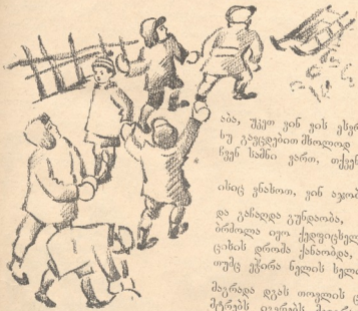 აბა, უკეთ ვინ ვის ესვრ
სუ გაუცდებით მხოლოდ
ჩვენ სამნი ვართ, თქვენ
ისიც ვნახოთ, ვინ აჯობ
და გაჩაღდა გუნდაობა,
ბრძოლა იყო ქედფიცხელ
ციხის დროშა ქანაობდა,
თუმც ეჭირა ნელის ხელ
მაგრადა დგას თოვლის ც
მტრებს